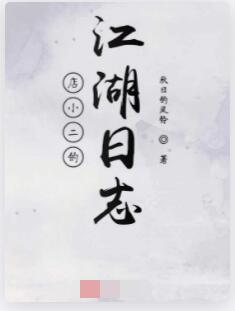 店小二的
江湖日志
秋日的风铃 ◎ 著